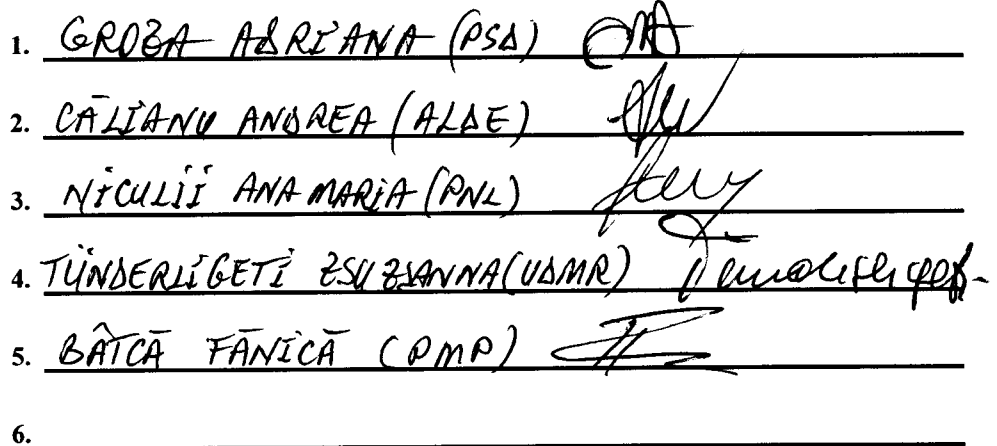 1. GROZA ADRIANA (PSD)
2. CĂLIANU ANDREA (ALDE)
3. NICULII ANA MARIA (PNL)
4. TÜNDERLIGETI ZSUZSANNA (UDMR)
5. BÂTCĂ FĂNICĂ (PMP)
6.